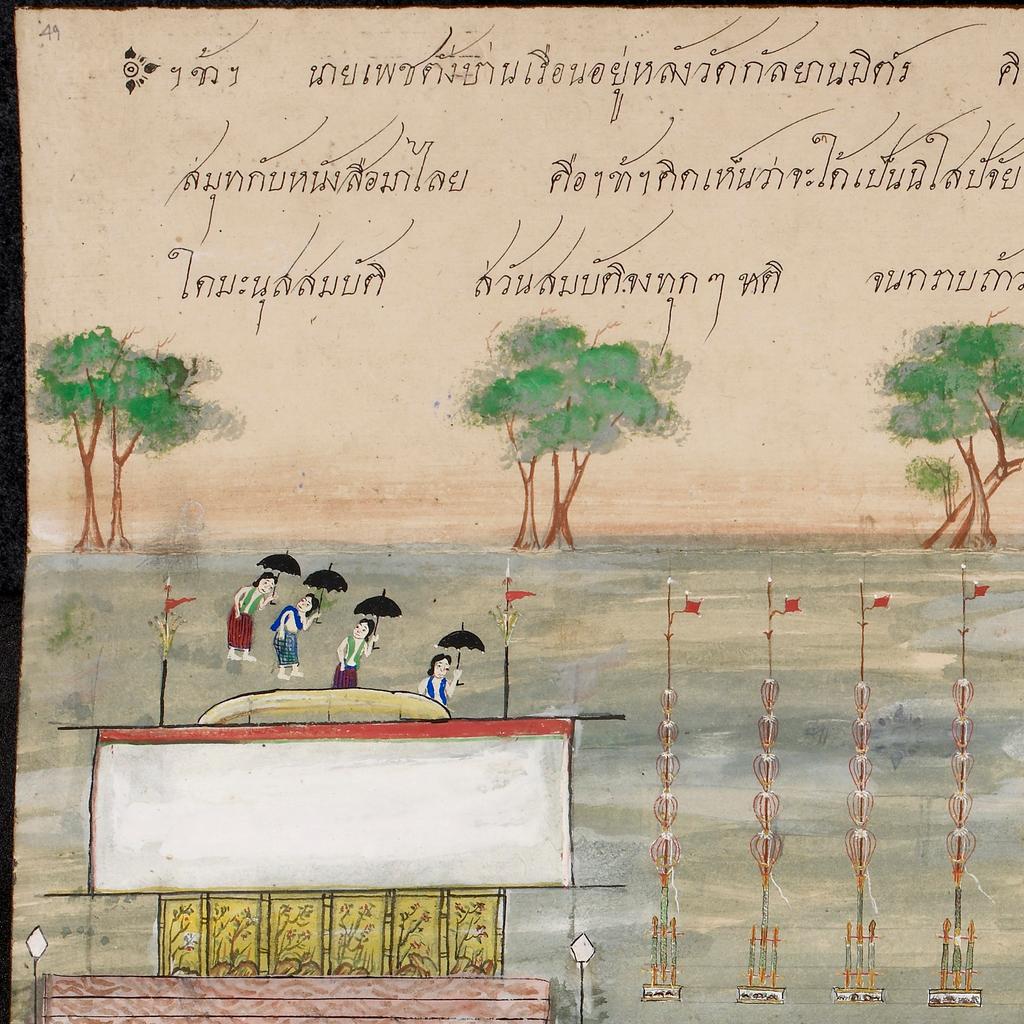 49
ฯ ข้า ฯ นายเพชตั้งบ้านเรือนอยู่หลังวัดกัลยานมิตร์ คิ
สมุทกับหนังสือมาไลย คือฯข้าฯคิดเหนว่าจะได้เปนนิไสปัจัย
ไดมะนุสสมบัติ สวันสมบัติจงทุก ๆ หติ จนกราบเท้า